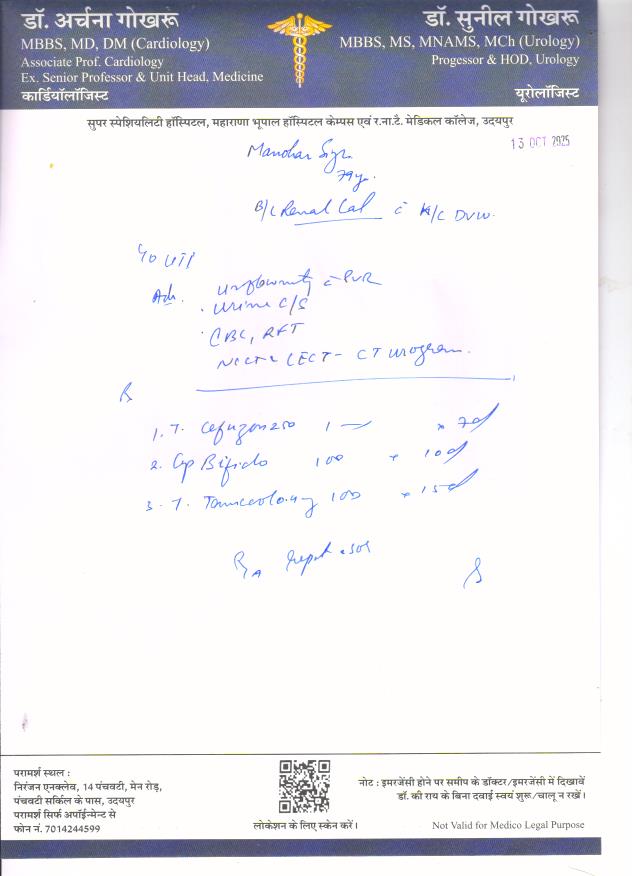 डॉ. अर्चना गोखरू
MBBS, MD, DM (Cardiology)
Associate Prof. Cardiology
Ex. Senior Professor & Unit Head, Medicine
कार्डियॉलॉजिस्ट
डॉ. सुनील गोखरू
MBBS, MS, MNAMS, MCh (Urology)
Progessor & HOD, Urology
यूरोलॉजिस्ट
सुपर स्पेशियलिटी हॉस्पिटल, महाराणा भूपाल हॉस्पिटल केम्पस एवं र.ना.टै. मेडिकल कॉलेज, उदयपुर
13 OCT 2025
Manohar
79y.
B/L Renal Cal c K/C
UTI
Adv. c PVR
. Urine C/S
. CBC, RFT
CT Urogram.
R
1. T. 250 1 x 7d
2. Cap Bifido 100 x 10d
3. T. 100 x 15d
परामर्श स्थल :
निरंजन एनक्लेव, 14 पंचवटी, मेन रोड़,
पंचवटी सर्किल के पास, उदयपुर
परामर्श सिर्फ अपॉईन्टमेन्ट से
फोन नं. 7014244599
लोकेशन के लिए स्केन करें।
नोट : इमरजेंसी होने पर समीप के डॉक्टर/इमरजेंसी में दिखावें
डॉ. की राय के बिना दवाई स्वयं शुरू/चालू न रखें।
Not Valid for Medico Legal Purpose